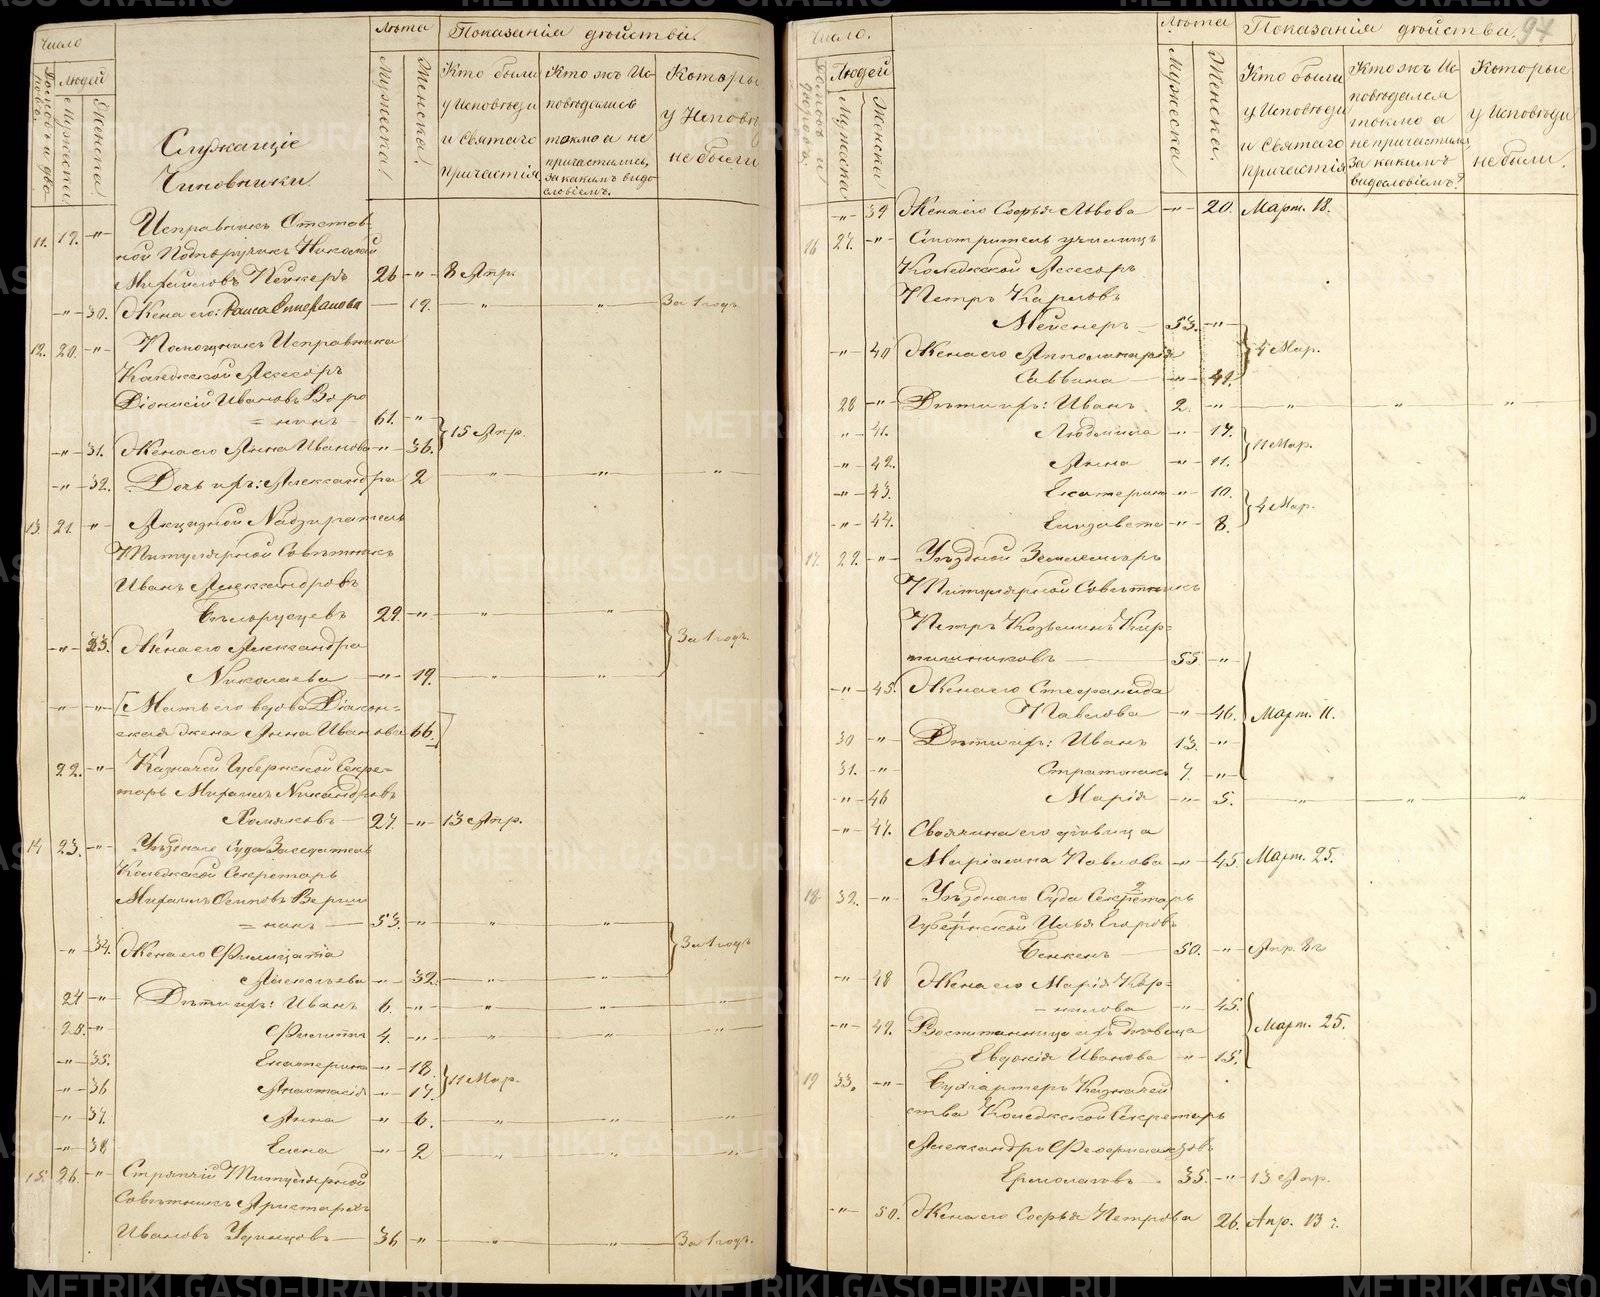 Число
Домовъ и дво-
ровъ.
Людей
Мужеска
Женска
Служащіе
Чиновники.
Лѣта
Мужеска
Женска.
Показанія дѣйства.
Кто были
у Исповѣди
и Святаго
Причастія
Кто жъ Ис-
повѣдались
токмо а не
причастились,
за какимъ видо-
словіемъ.
Которы
у Исповѣ
не были
11. 19. -"- Исправникъ Отстав-
ной Подпоручикъ Николай
Михайловъ Пейкеръ 26 -"- 8 Апр.
-"- 30. Жена его: Раиса Стефанова — 19. " " За 1 годъ
12. 20. -"- Помощникъ Исправника
Колежской Ассесоръ
Діонисій Ивановъ Воро
= нинъ 61. -"-
-"- 31. Жена его Анна Иванова -"- 36. 15 Апр.
-"- 32. Дочь ихъ: Александра 2 " " "
13. 21. -"- Акцизной Надзиратель
Титулярной Совѣтникъ
Иванъ Александровъ
Бѣлорусцевъ 29. -"- " "
-"- 33. Жена его Александра За 1 годъ.
Николаева -"- 19. " "
-"- -"- [Мать его вдова Діакон-
ская жена Анна Иванова 66.]
22. -"- Казначей Губернской Секре-
тарь Михаилъ Никандровъ
Хомяковъ 27. -"- 13 Апр.
14 23. -"- Уѣзднаго Суда Засѣдатель
Колежской Секретарь
Михаилъ Осиповъ Верши
= нинъ 53. -"- " "
-"- 34. Жена его Филицата За 1 годъ
Алексѣева -"- 32. " "
24 -"- Дѣти ихъ: Иванъ 6. -"- " " "
25. -"- Филиппъ 4. -"- " " "
-"- 35. Екатерина -"- 18.
-"- 36 Анастасія -"- 17. 11 Мар.
-"- 37. Анна -"- 6. " " "
-"- 38 Елена -"- 2 " " "
15. 26. -"- Стряпчій Титулярной
Совѣтникъ Аристархъ
Ивановъ Удинцовъ 36 -"- " " За 1 годъ.
Число.
Домовъ и
дворовъ.
Людей
Мужеска
Женска
Лѣта
Мужеска
Женска.
Показанія дѣйства. 94
Кто были
у Исповѣди
и Святаго
Причастія
Кто жъ Ис-
повѣдался
токмо а
не причастился
За какимъ
видословіемъ?
Которые
у Исповѣди
не были.
-"- 39 Жена его Софья Львова -"- 20. Март. 18.
16 27. -"- Смотритель училищъ
Колежской Ассесоръ
Петръ Карловъ
Мейснеръ 53. -"-
-"- 40 Жена его Апполинарія 4 Мар.
Саввина -"- 41.
28 -"- Дѣти ихъ: Иванъ 2. -"- " " "
-"- 41. Людмила -"- 17.
-"- 42. Анна -"- 11. 11 Мар.
-"- 43. Екатерина -"- 10.
-"- 44. Елизавета -"- 8. 4 Мар.
17. 29. -"- Уѣздной Землемѣръ
Титулярной Совѣтникъ
Петръ Козьминъ Кир-
пишниковъ 55 -"-
-"- 45. Жена его Стефанида
Павлова -"- 46. Март. 11.
30 -"- Дѣти ихъ: Иванъ 13. -"-
31. -"- Стратоникъ 7. -"-
-"- 46 Марія -"- 5. " " "
-"- 47. Своячина его дѣвица
Маріамна Павлова -"- 45 Март. 25.
18. 32. -"- Уѣзднаго Суда Секретарь
Губернской Илья Егоровъ
Бенкенъ 50. -"- Апр. 8 г
-"- 48 Жена его Марія Кор-
= нилова -"- 45.
-"- 49. Воспитанница ихъ дѣвица Март. 25.
Евдокія Иванова -"- 15.
19 33. -"- Бухгалтеръ Казначей
ства Колежской Секретарь
Александръ Феофилактовъ
Ермолаевъ 35. -"- 13 Апр.
-"- 50. Жена его Софья Петрова 26. Апр. 13 г.
METRIKI.GASO-URAL.RU